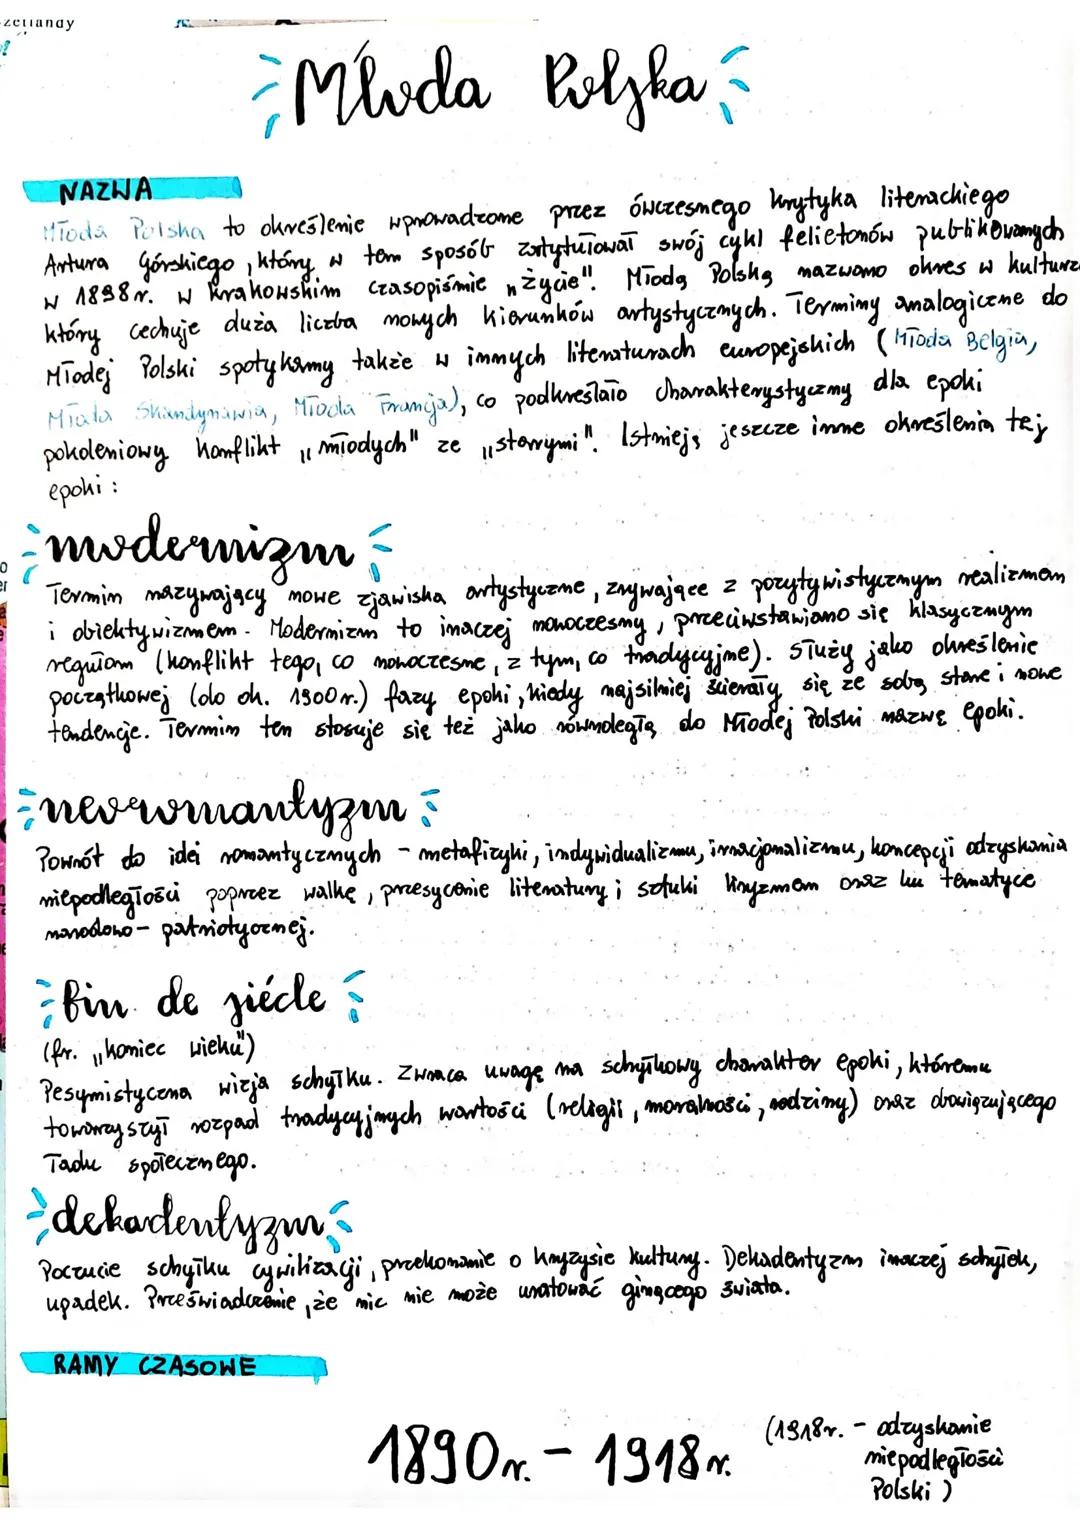 zetlandy
Młoda Polska
NAZWA
Młoda Polska to określenie wprowadzone przez ówczesnego krytyka literackiego
Artura Górskiego, który w ten sposób zatytułował swój cykl felietonów publikowanych
w 1898r. w krakowskim czasopiśmie „życie". Młodą Polską nazwano okres w kulturze
który cechuje duża liczba nowych kierunków artystycznych. Terminy analogiczne do
Młodej Polski spotykamy także w innych literaturach europejskich (Młoda Belgia,
Młoda Skandynawia, Młoda Francja), co podkreślało charakterystyczny dla epoki
pokoleniowy konflikt „młodych" ze „starymi". Istnieją jeszcze inne określenia tej
epoki:
modernizm
Termin nazywający nowe zjawiska artystyczne, zrywające z pozytywistycznym realizmem
i obiektywizmem. Modernizm to inaczej nowoczesny, przeciwstawiano się klasycznym
regułom (konflikt tego, co nowoczesne, z tym, co tradycyjne). Służy jako określenie
początkowej (do ok. 1900r.) fazy epoki, kiedy najsilniej ścierały się ze sobą stare i nowe
tendencje. Termin ten stosuje się też jako równoległą do Młodej Polski nazwę epoki.
neoromantyzm
Powrót do idei romantycznych - metafizyki, indywidualizmu, irracjonalizmu, koncepcji odzyskania
niepodległości poprzez walkę, przesycenie literatury i sztuki liryzmem oraz ku tematyce
narodowo - patriotycznej.
fin de siécle
(fr. „koniec wieku")
Pesymistyczna wizja schyłku. Zwraca uwagę na schyłkowy charakter epoki, któremu
towarzyszył rozpad tradycyjnych wartości (religii, moralności, rodziny) oraz obowiązującego
ładu społecznego.
dekadentyzm
Poczucie schyłku cywilizacji, przekonanie o kryzysie kultury. Dekadentyzm inaczej schyłek,
upadek. Przeświadczenie, że nic nie może uratować ginącego świata.
RAMY CZASOWE
1890r. - 1918r. (1918r. - odzyskanie
niepodległości
Polski)